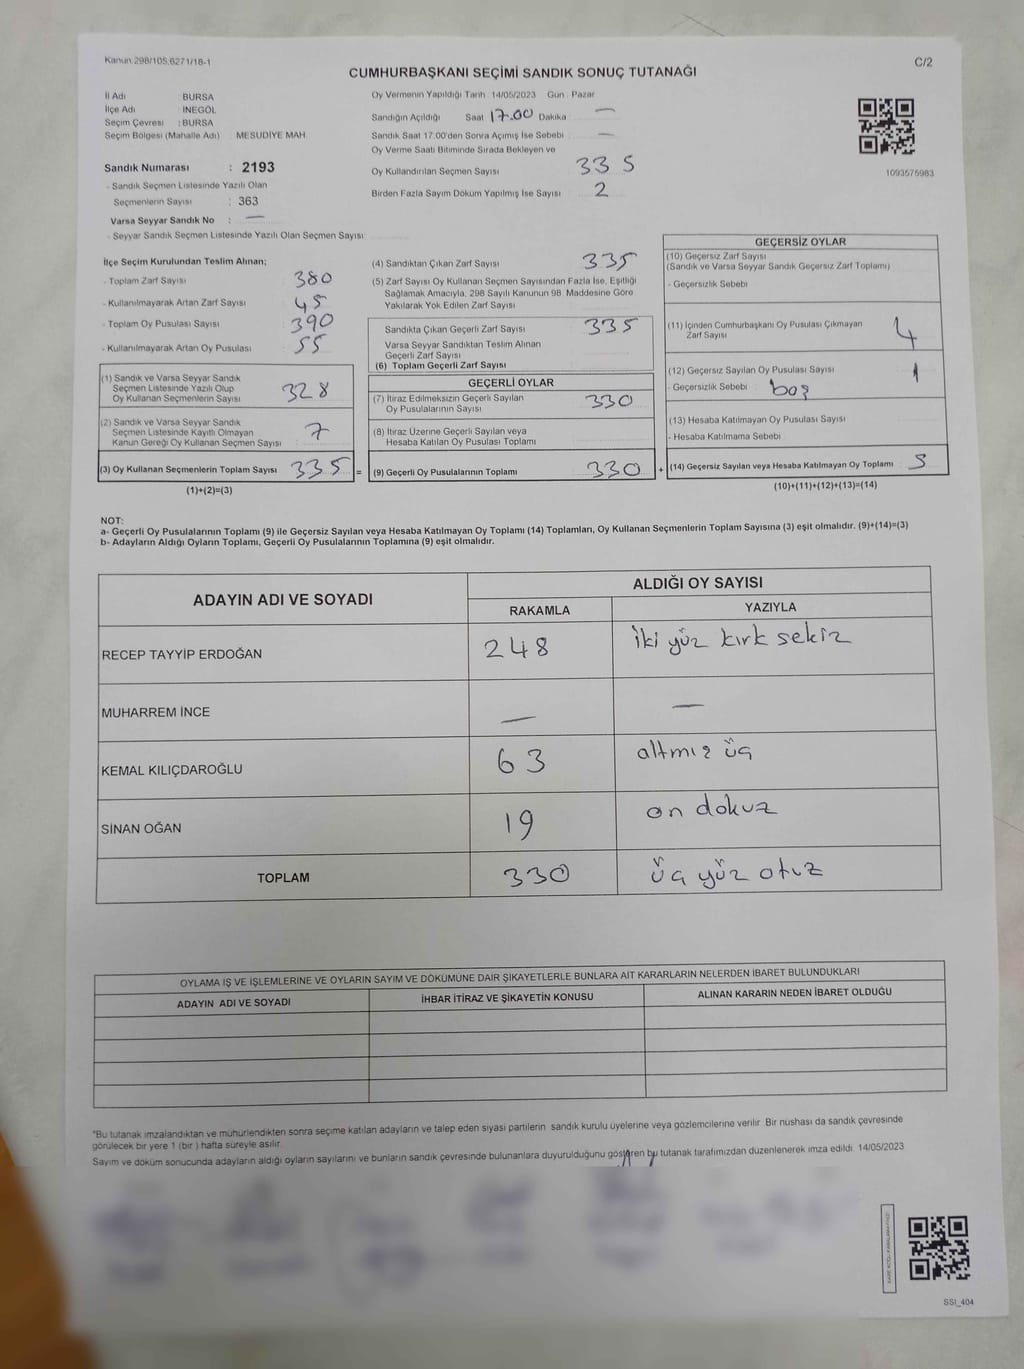 Kanun 298/105,6271/18-1
C/2
CUMHURBAŞKANI SEÇİMİ SANDIK SONUÇ TUTANAĞI
İl Adı : BURSA
İlçe Adı : İNEGÖL
Seçim Çevresi : BURSA
Seçim Bölgesi (Mahalle Adı) MESUDİYE MAH.
Sandık Numarası : 2193
- Sandık Seçmen Listesinde Yazılı Olan
Seçmenlerin Sayısı : 363
Varsa Seyyar Sandık No : —
- Seyyar Sandık Seçmen Listesinde Yazılı Olan Seçmen Sayısı
Oy Vermenin Yapıldığı Tarih : 14/05/2023 Gün : Pazar
Sandığın Açıldığı Saat 17.00 Dakika —
Sandık Saat 17:00'den Sonra Açılmış İse Sebebi —
Oy Verme Saati Bitiminde Sırada Bekleyen ve
Oy Kullandırılan Seçmen Sayısı 335
Birden Fazla Sayım Döküm Yapılmış İse Sayısı 2
1093575983
İlçe Seçim Kurulundan Teslim Alınan;
- Toplam Zarf Sayısı 380
- Kullanılmayarak Artan Zarf Sayısı 45
- Toplam Oy Pusulası Sayısı 390
- Kullanılmayarak Artan Oy Pusulası 55
(1) Sandık ve Varsa Seyyar Sandık
Seçmen Listesinde Yazılı Olup
Oy Kullanan Seçmenlerin Sayısı 328
(2) Sandık ve Varsa Seyyar Sandık
Seçmen Listesinde Kayıtlı Olmayan
Kanun Gereği Oy Kullanan Seçmen Sayısı 7
(3) Oy Kullanan Seçmenlerin Toplam Sayısı 335 =
(1)+(2)=(3)
(4) Sandıktan Çıkan Zarf Sayısı 335
(5) Zarf Sayısı Oy Kullanan Seçmen Sayısından Fazla İse, Eşitliği
Sağlamak Amacıyla, 298 Sayılı Kanunun 98. Maddesine Göre
Yakılarak Yok Edilen Zarf Sayısı
Sandıkta Çıkan Geçerli Zarf Sayısı 335
Varsa Seyyar Sandıktan Teslim Alınan
Geçerli Zarf Sayısı
(6) Toplam Geçerli Zarf Sayısı
GEÇERLİ OYLAR
(7) İtiraz Edilmeksizin Geçerli Sayılan
Oy Pusulalarının Sayısı 330
(8) İtiraz Üzerine Geçerli Sayılan veya
Hesaba Katılan Oy Pusulası Toplamı
(9) Geçerli Oy Pusulalarının Toplamı 330 +
GEÇERSİZ OYLAR
(10) Geçersiz Zarf Sayısı
(Sandık ve Varsa Seyyar Sandık Geçersiz Zarf Toplamı)
- Geçersizlik Sebebi
(11) İçinden Cumhurbaşkanı Oy Pusulası Çıkmayan
Zarf Sayısı 4
(12) Geçersiz Sayılan Oy Pusulası Sayısı 1
- Geçersizlik Sebebi boş
(13) Hesaba Katılmayan Oy Pusulası Sayısı
- Hesaba Katılmama Sebebi
(14) Geçersiz Sayılan veya Hesaba Katılmayan Oy Toplamı 5
(10)+(11)+(12)+(13)=(14)
NOT:
a- Geçerli Oy Pusulalarının Toplamı (9) ile Geçersiz Sayılan veya Hesaba Katılmayan Oy Toplamı (14) Toplamları, Oy Kullanan Seçmenlerin Toplam Sayısına (3) eşit olmalıdır. (9)+(14)=(3)
b- Adayların Aldığı Oyların Toplamı, Geçerli Oy Pusulalarının Toplamına (9) eşit olmalıdır.
ADAYIN ADI VE SOYADI
ALDIĞI OY SAYISI
RAKAMLA YAZIYLA
RECEP TAYYİP ERDOĞAN 248 iki yüz kırk sekiz
MUHARREM İNCE — —
KEMAL KILIÇDAROĞLU 63 altmış üç
SİNAN OĞAN 19 on dokuz
TOPLAM 330 üç yüz otuz
OYLAMA İŞ VE İŞLEMLERİNE VE OYLARIN SAYIM VE DÖKÜMÜNE DAİR ŞİKAYETLERLE BUNLARA AİT KARARLARIN NELERDEN İBARET BULUNDUKLARI
ADAYIN ADI VE SOYADI İHBAR İTİRAZ VE ŞİKAYETİN KONUSU ALINAN KARARIN NEDEN İBARET OLDUĞU
"Bu tutanak imzalandıktan ve mühürlendikten sonra seçime katılan adayların ve talep eden siyasi partilerin sandık kurulu üyelerine veya gözlemcilerine verilir. Bir nüshası da sandık çevresinde
görülecek bir yere 1 (bir) hafta süreyle asılır.
Sayım ve döküm sonucunda adayların aldığı oyların sayılarını ve bunların sandık çevresinde bulunanlara duyurulduğunu gösteren bu tutanak tarafımızdan düzenlenerek imza edildi. 14/05/2023
SSI_404